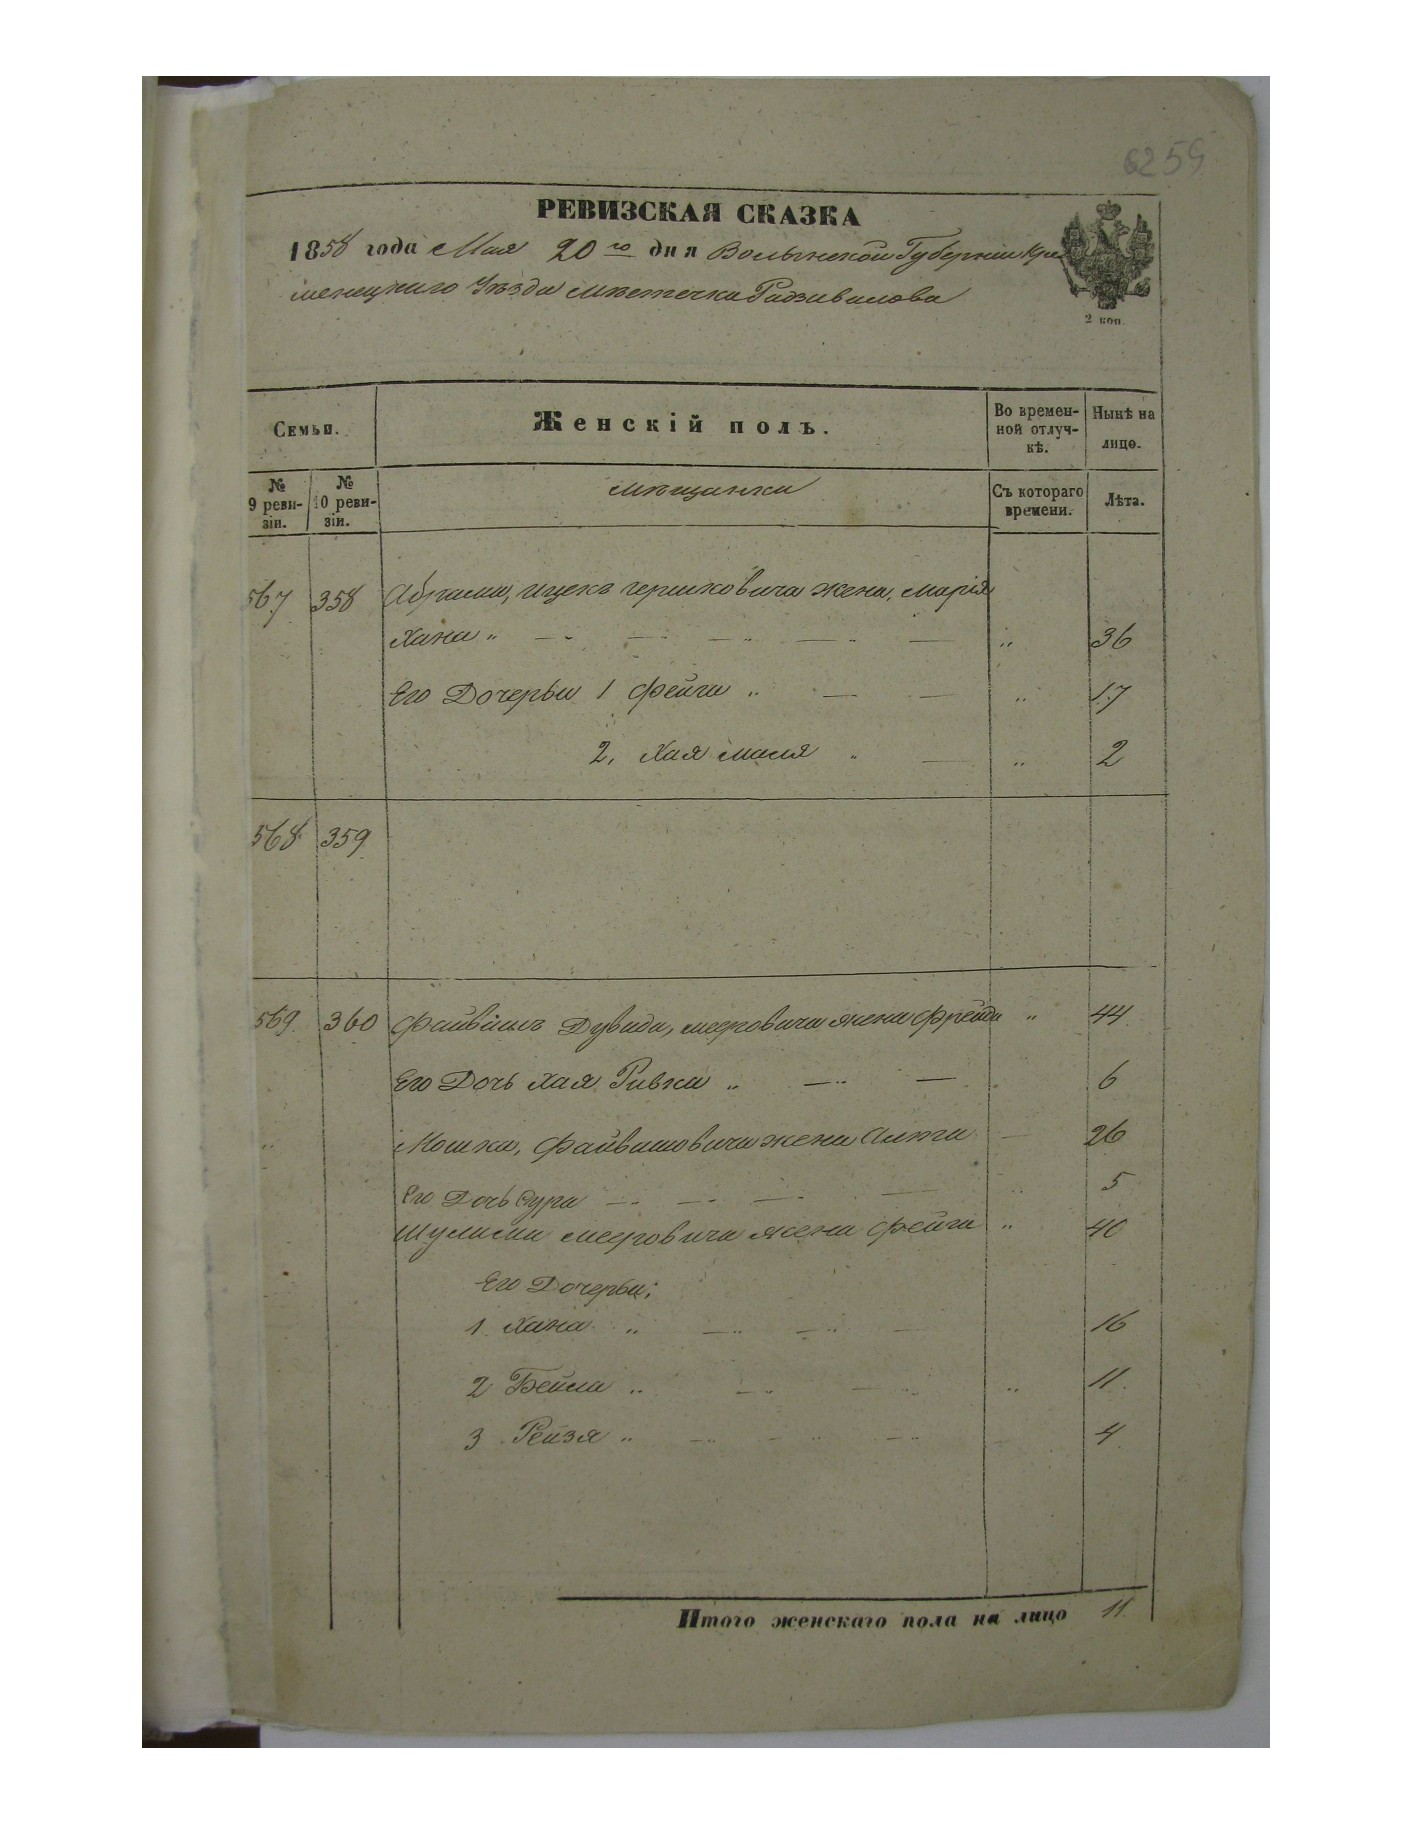 6259
РЕВИЗСКАЯ СКАЗКА
1858 года Мая 20го дня Волынской Губерніи Кре
менецкаго Уѣзда мѣстечка Радзивилова
2 коп.
Семьи.
Женскій полъ.
Во времен-
ной отлуч-
кѣ.
Нынѣ на
лицо.
№
9 реви-
зіи.
№
10 реви-
зіи.
мѣщанки
Съ котораго
времени.
Лѣта.
567 358 Абрама, Ицекъ Гершковича жена, Марія
Хана „ — „ — „ — „ — „ — „ 36
Его Дочерьи 1 Фейга „ — — „ 17
2, Хая Маля „ — „ 2
568 359
569 360 Файвишъ Дувида, Мееровича жена Фрейда „ 44
Его Дочь Хая Ривка „ — „ — 6
Мошка, Файвишовича жена Алта — 26
Его Дочь Сура — „ — „ — „ — „ 5
Шулима Мееровича жена Фейга „ 40
Его Дочерьи;
1 Хана „ — „ — „ — 16
2 Бейла „ — „ — „ „ 11
3 Рейзя „ — „ — „ — „ 4
Итого женскаго пола на лицо 11